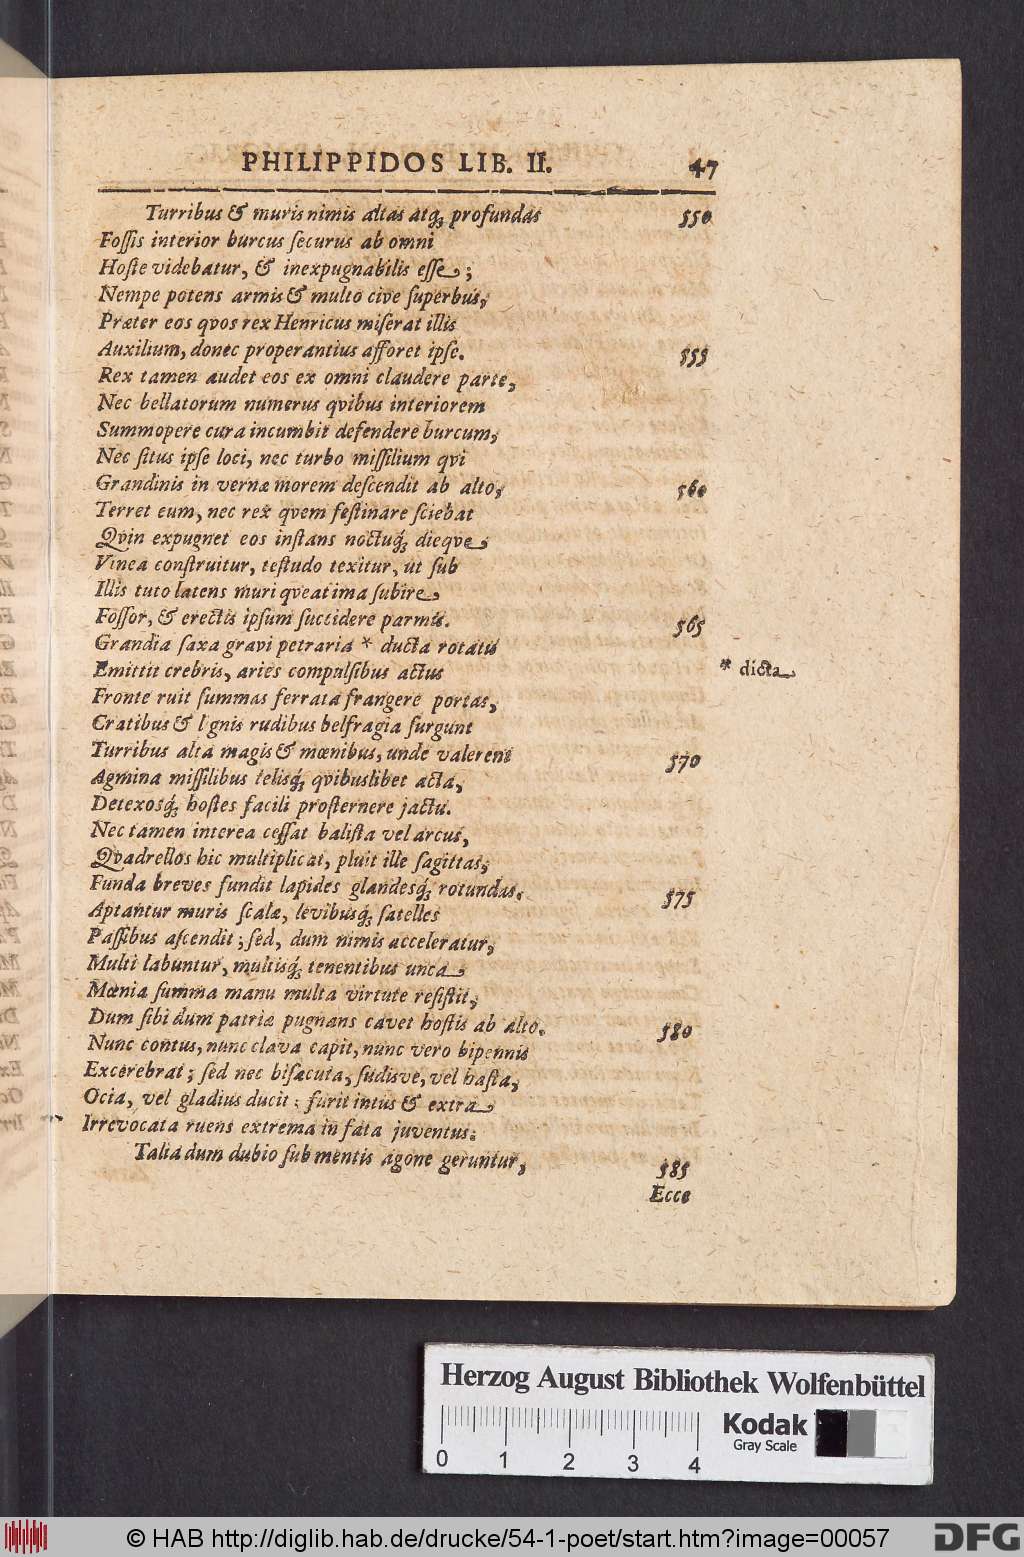 PHILIPPIDOS LIB. II. 47
Turribus & muris nimis altas atq; profundas 550
Fossis interior burcus securus ab omni
Hoste videbatur, & inexpugnabilis esse;
Nempe potens armis & multo cive superbus,
Præter eos qvos rex Henricus miserat illis
Auxilium, donec properantius afforet ipse. 555
Rex tamen audet eos ex omni claudere parte,
Nec bellatorum numerus qvibus interiorem
Summopere cura incumbit defendere burcum,
Nec situs ipse loci, nec turbo missilium qvi
Grandinis in vernæ morem descendit ab alto, 560
Terret eum, nec rex qvem festinare sciebat
Qvin expugnet eos instans noctuq́; dieqve
Vinea construitur, testudo texitur, ut sub
Illis tuto latens muri qveat ima subire
Fossor, & erectis ipsum succidere parmis. 565
Grandia saxa gravi petraria * ducta rotatu
Emittit crebris, aries compulsibus actus * dicta
Fronte ruit summas ferrata frangere portas,
Cratibus & lignis rudibus belfragia surgunt
Turribus alta magis & mœnibus, unde valerent 570
Agmina missilibus telisq́; qvibuslibet acta,
Detexosq́; hostes facili prosternere jactu.
Nec tamen interea cessat balista vel arcus,
Qvadrellos hic multiplicat, pluit ille sagittas,
Funda breves fundit lapides glandesq́; rotundas. 575
Aptantur muris scalæ, levibusq́; satelles
Passibus ascendit; sed, dum nimis acceleratur,
Multi labuntur, multisq́; tenentibus unca
Mœnia summa manu multa virtute resistit,
Dum sibi dum patriæ pugnans cavet hostis ab alto. 580
Nunc contus, nunc clava capit, nunc vero bipennis
Excerebrat; sed nec bisacuta, sudisve, vel hasta,
Ocia, vel gladius ducit: furit intus & extra
Irrevocata ruens extrema in fata juventus.
Talia dum dubio sub mentis agone geruntur, 585
Ecce
Herzog August Bibliothek Wolfenbüttel
Kodak
Gray Scale
0 1 2 3 4
© HAB http://diglib.hab.de/drucke/54-1-poet/start.htm?image=00057
DFG